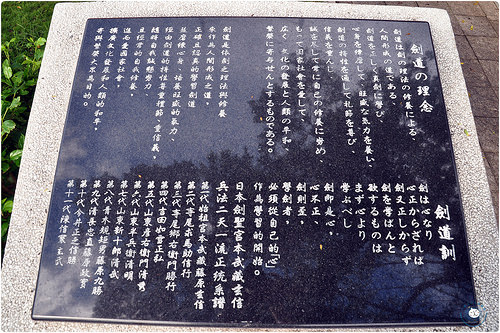 劍道の理念
劍道は劍の理法の修養による、
人間形成の道である、
劍道を正しく真劍に學び、
心身を練磨して旺盛な氣力を養い、
劍道の特性を通じて礼節を尊び、
信義を重んじ、
誠を盡して常に自己の修養に努め、
もって国家社会を愛して、
広く、文化の發展と人類の平和、
繁榮に寄与せんとするものである。
劍道是依劍之理法與修養
來作為人間形成之道，
正確且認真的學習劍道
並磨練心身，培養旺盛的氣力、
經由劍道的特性尊重禮節，重信義，
隨時自我誠懇努力，
且經常的自我修養，
進而愛國家社會
擴展文化發展和人類的和平，
劍道訓
劍は心なり
心正からざれば
劍又正しからず
劍を學ばんと
欲するものは
まず心より
學ぶべし
劍即是心，
心不正、
劍則歪，
學劍者，
必須從自己的「心」
作為學習的開始。
日本劍聖宮本武藏玄信
兵法二天一流正統系譜
第一代始祖宮本武藏藤原玄信
第二代寺尾求馬助信行
第三代寺尾鄉右衛門勝行
第四代吉田如雪正弘
第五代山東彦右衛門清秀
第六代山東半兵衛清明
第七代山東新十郎清武
第八代青木規矩男藤原久勝
第十代今井正之信勝